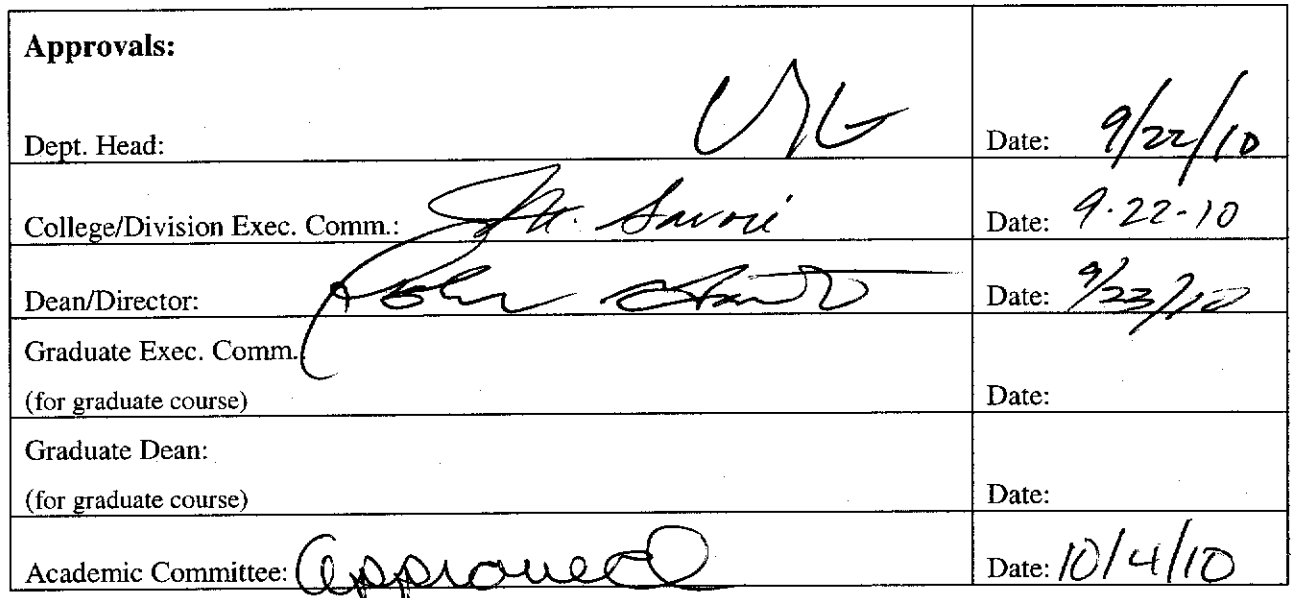 Approvals:
Dept. Head: Date: 9/22/10
College/Division Exec. Comm.: Savoie Date: 9-22-10
Dean/Director: Date: 9/23/10
Graduate Exec. Comm.
(for graduate course) Date:
Graduate Dean:
(for graduate course) Date:
Academic Committee: Approved Date: 10/4/10